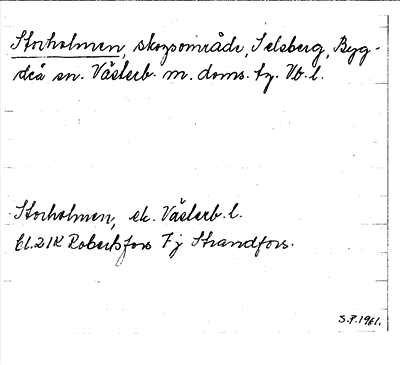 Storholmen, skogsområde, Selsberg, Byg-
deå sn. Västerb. m. doms. tg. Vb. l.
Storholmen, ek. Västerb. l.
bl. 21K Robertsfors 7j Strandfors.
S.F. 1961.